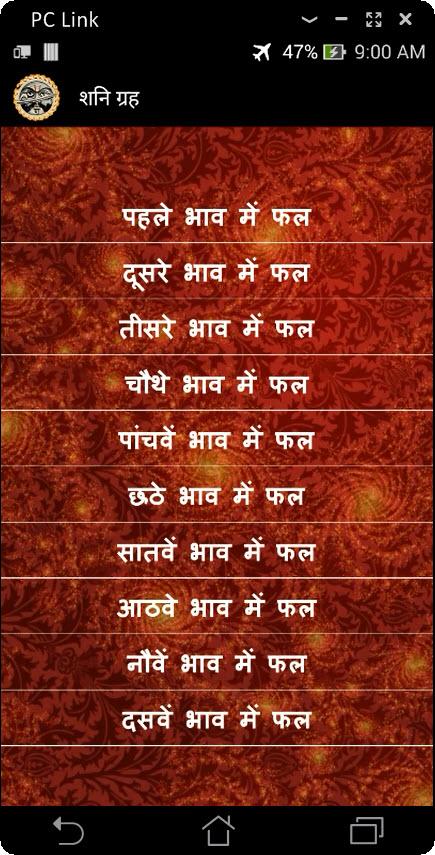 PC Link
47% 9:00 AM
शनि ग्रह
पहले भाव में फल
दूसरे भाव में फल
तीसरे भाव में फल
चौथे भाव में फल
पांचवें भाव में फल
छठे भाव में फल
सातवें भाव में फल
आठवे भाव में फल
नौवें भाव में फल
दसवें भाव में फल